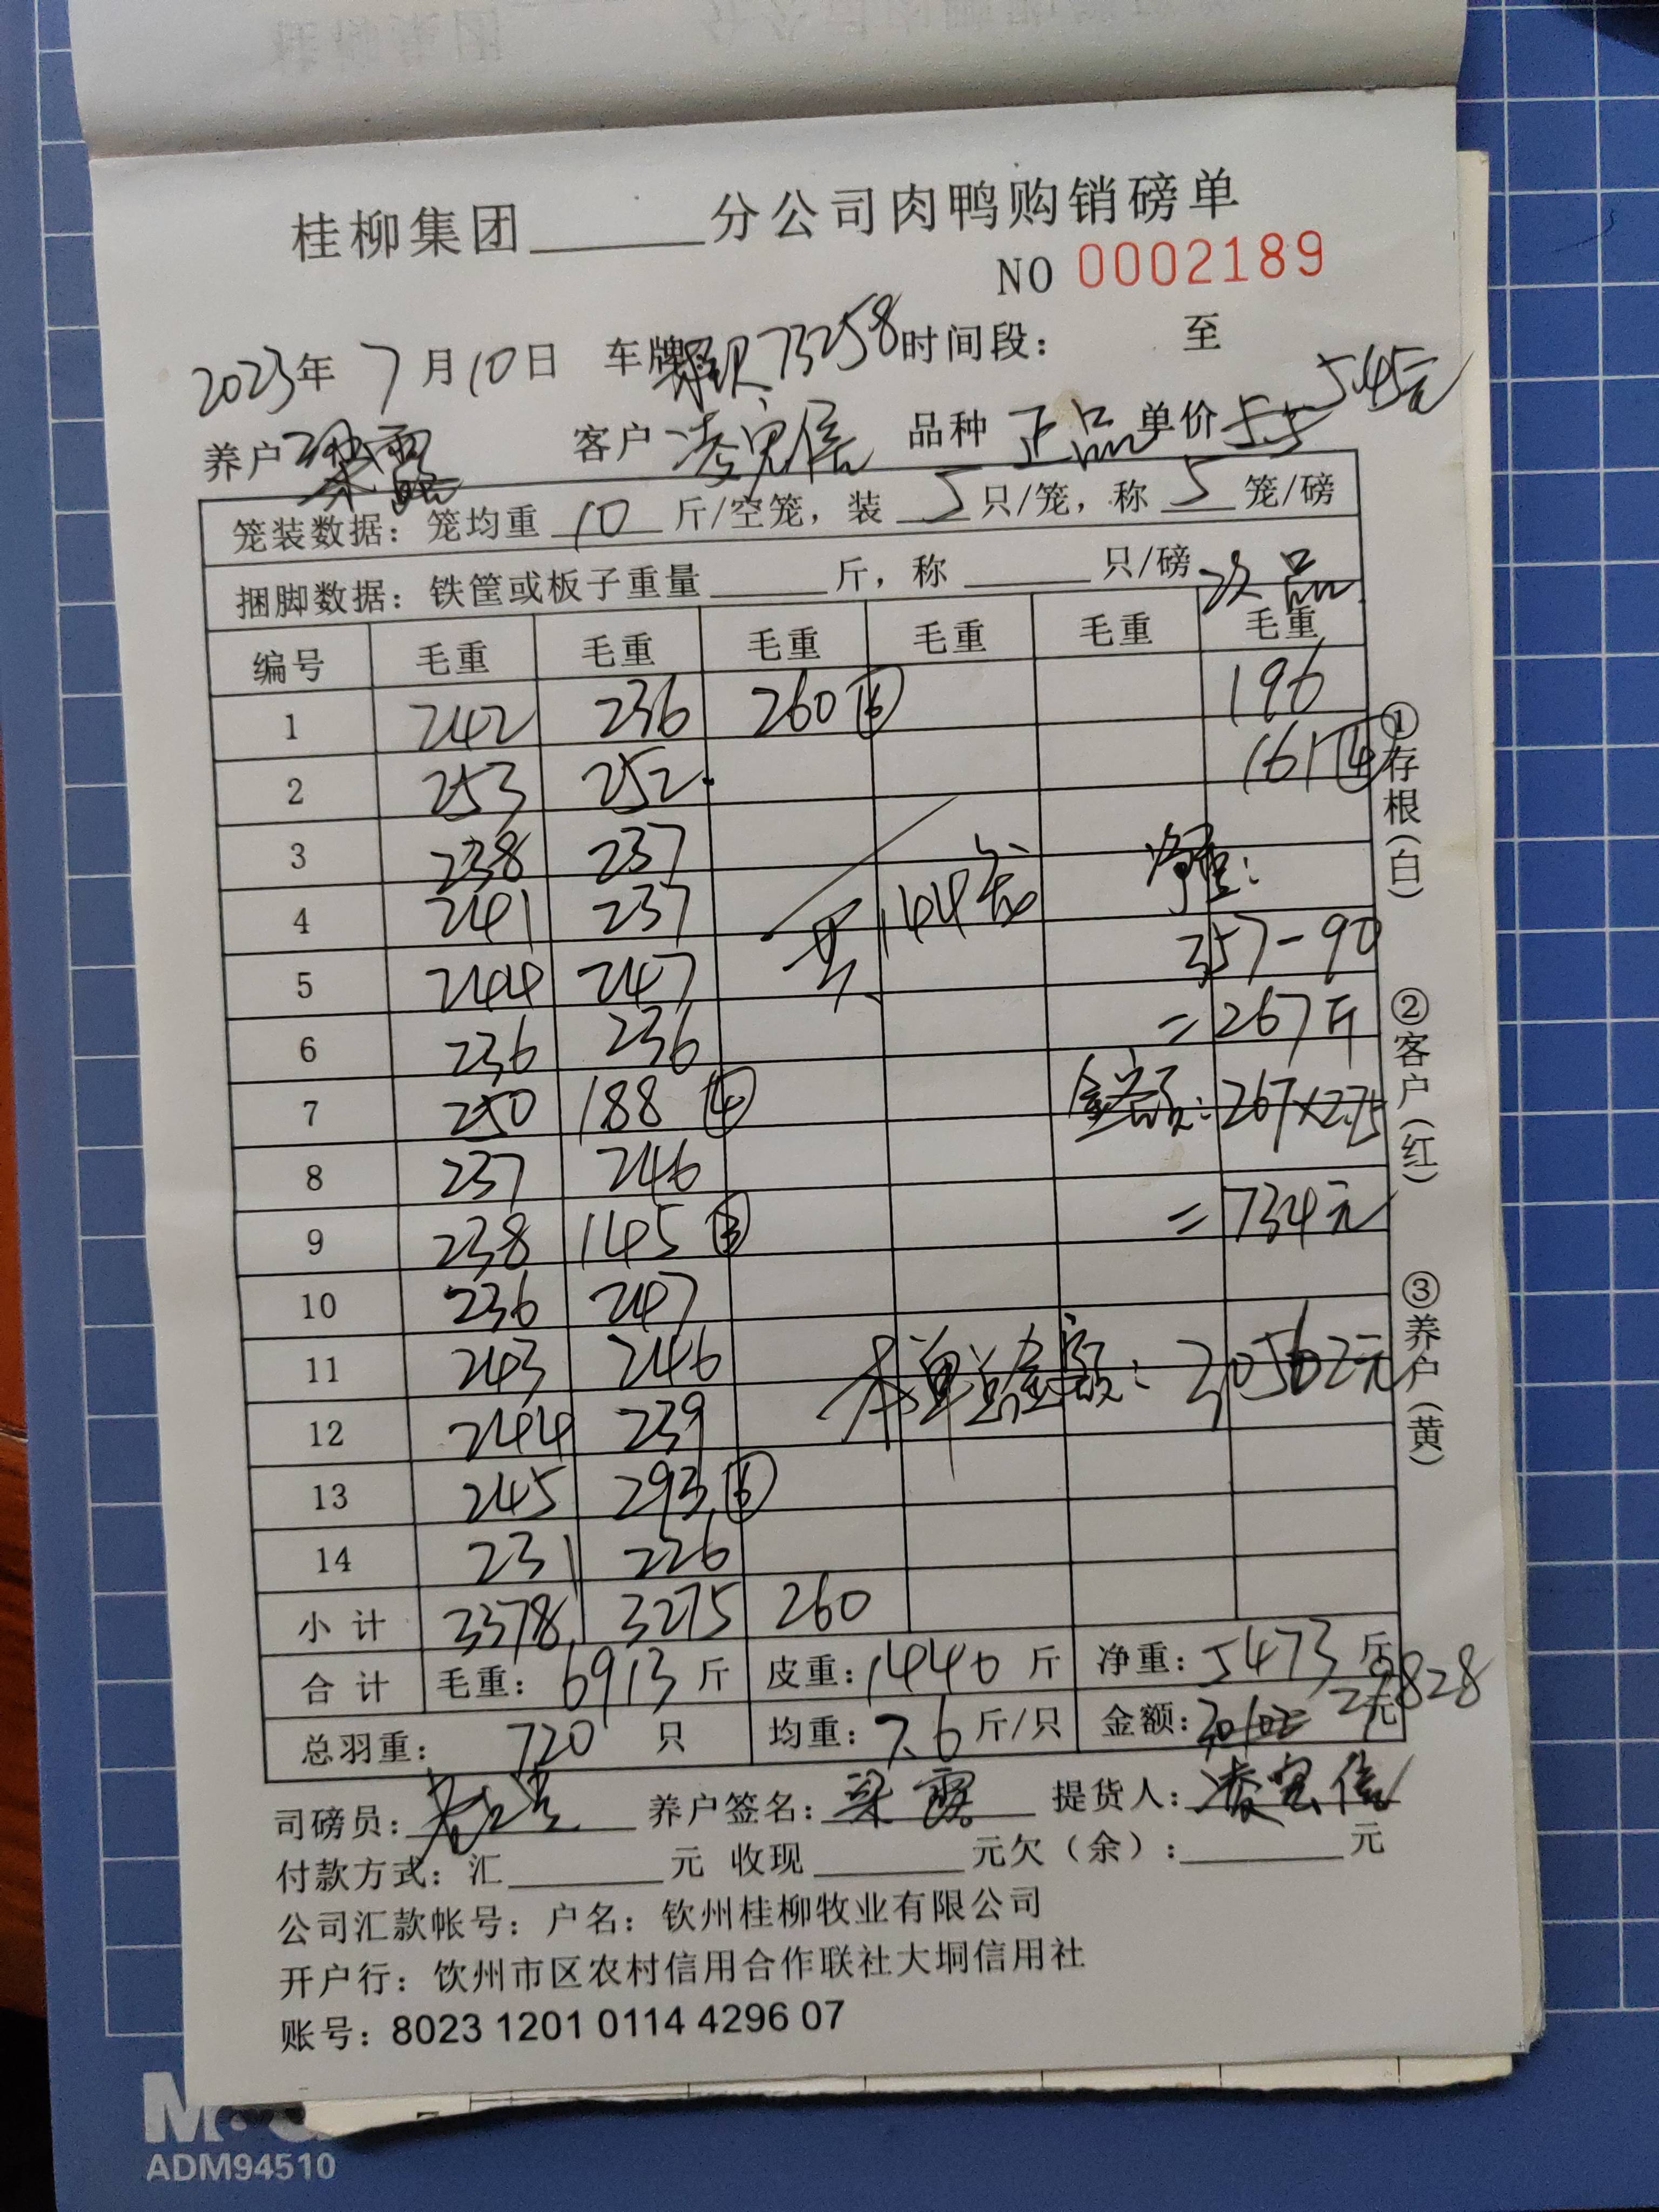 桂柳集团______分公司肉鸭购销磅单
NO 0002189
2023年 7月10日 车牌 73258 时间段： 至
养户 梁露 客户 凌宪信 品种 正品 单价 5.5 5.45元
笼装数据：笼均重 10 斤/空笼，装 5 只/笼，称 5 笼/磅
捆脚数据：铁筐或板子重量______斤，称______只/磅 次品
编号 毛重 毛重 毛重 毛重 毛重 毛重
1 242 236 260 ⑥ 196
2 253 252 161 ④
3 238 237 净重：
4 241 237 共144笼
5 244 247 357-90
6 236 236 =267斤
7 250 188 ④ 金额：267×2.75
8 237 246
9 238 145 ③ =734元
10 236 247
11 243 246 本单总金额：30562元
12 244 239
13 245 293 ⑥
14 231 226
小计 3378 3275 260
合计 毛重：6913斤 皮重：1440斤 净重：5473斤
总羽重：720只 均重：7.6斤/只 金额：30102 29828元
司磅员： 养户签名：梁露 提货人：凌宪信
付款方式：汇______元 收现______元欠（余）：______元
公司汇款帐号：户名：钦州桂柳牧业有限公司
开户行：钦州市区农村信用合作联社大垌信用社
账号：8023 1201 0114 4296 07
①存根（白）
②客户（红）
③养户（黄）
ADM94510